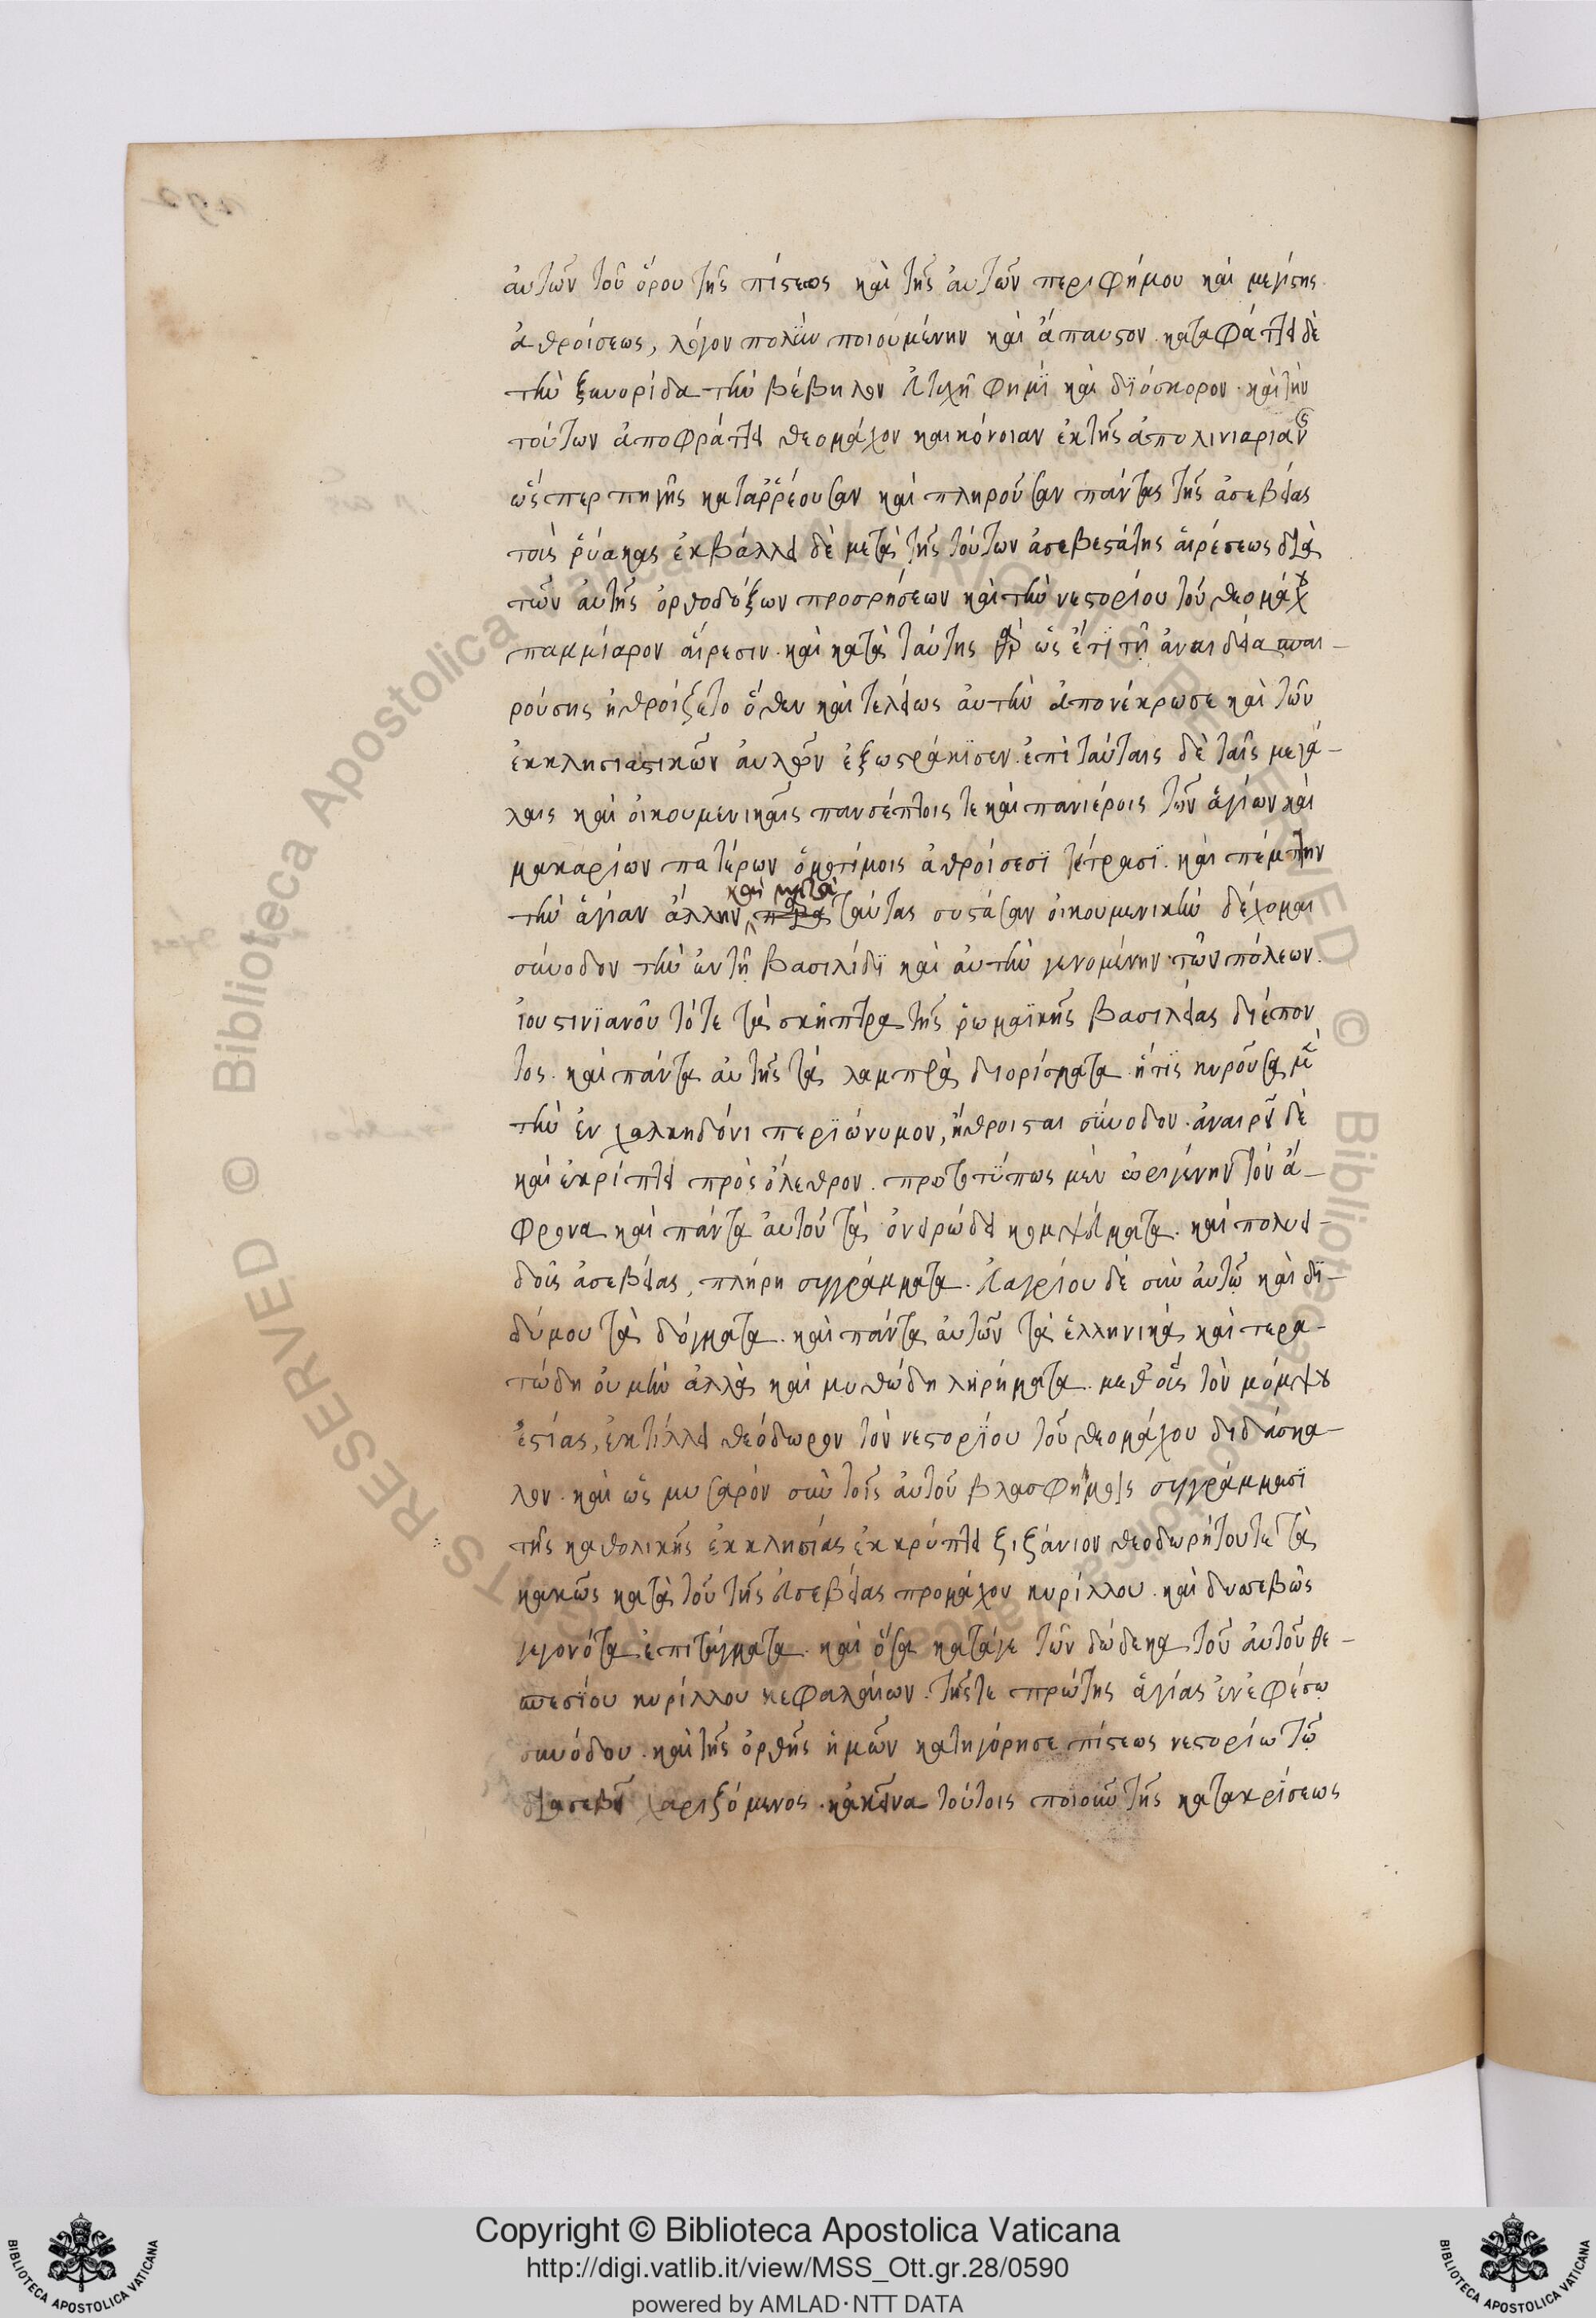 αὐτῶν τοῦ ὅρου τῆς πίστεως καὶ τῆς αὐτῶν περιφήμου καὶ μεγίστης
ἀθροίσεως, λόγον πολὺν ποιουμένην καὶ ἄπαυστον. καταφράττει δὲ
τὴν ξυνορίδα τὴν βέβηλον εὐτυχῆ φημῒ καὶ διόσκορον. καὶ τὴν
τούτων ἀποφράττει θεομάχον καικόνοιαν ἐκ τῆς ἀπολιναριαν
ὥσπερ πηγῆς καταῤῥέουσαν καὶ πληροῦσαν πάντας τῆς ἀσεβείας
τοὺς ῥύακας ἐκβάλλει δὲ μετὰ τῆς τούτων ἀσεβεστάτης αἱρέσεως διὰ
τῶν αὐτῆς ὀρθοδόξων προσρήσεων καὶ τὴν νεστορίου τοῦ θεομάχ
παμμίαρον αἵρεσιν. καὶ κατὰ ταύτης γὰρ ὡς ἔτι τῇ ἀναιδεία σπαι-
ρούσης ἠθροίζετο ὅθεν καὶ τελείως αὐτὴν ἀπονέκρωσε καὶ τῶν
ἐκκλησιαστικῶν αὐλῶν ἐξωστράκισεν. ἐπὶ ταύταις δὲ ταῖς μεγά-
λαις καὶ οἰκουμενικαῖς πανσέπτοις τε καὶ πανιέροις τῶν ἁγίων καὶ
μακαρίων πατέρων ὁμοτίμοις ἀθροίσεσϊ τέτρασϊ. καὶ πέμπτην
καὶ μετὰ
τὴν ἁγίαν ἄλλην ταύτας συστᾶσαν οἰκουμενικὴν δέχομαι
σύνοδον τὴν ἐν τῇ βασιλίδϊ καὶ αὐτὴν γενομένην τῶν πόλεων.
ἰουστινϊανοῦ τότε τὰ σκῆπτρα τῆς ῥωμαϊκῆς βασιλείας διέπον
τος. καὶ πάντα αὐτῆς τὰ λαμπρὰ διορίσματα. ἥτις κυροῦσα μὲν
τὴν ἐν χαλκηδόνι περϊώνυμον, ἤθροισται σύνοδον. ἀναιρεῖ δὲ
καὶ ἐκρίπτει πρὸς ὄλεθρον. πρωτοτύπως μὲν ὠριγένην τὸν ἄ-
φρονα καὶ πάντα αὐτοῦ τὰ ὀνειρώδει κομψεύματα. καὶ πολυει-
δοῦς ἀσεβείας, πλήρη συγγράμματα. εὐαγρίου δὲ σὺν αὐτῷ καὶ δϊ-
δύμου τὰ δόγματα. καὶ πάντα αὐτῶν τὰ ἑλληνικὰ καὶ τερα-
τώδη οὐ μὴν ἀλλὰ καὶ μυθώδη ληρήματα. μεθ' οὓς τὸν μόμψου
ἑστίας, ἐκτίλλει θεόδωρον τὸν νεστορίου τοῦ θεομάχου διδάσκα-
λον. καὶ ὡς μυσαρὸν σὺν τοῖς αὐτοῦ βλασφήμοις συγγράμμασϊ
τῆς καθολικῆς ἐκκλησίας ἐκκρύπτει ζιζάνιον θεοδωρήτου τε τὰ
κακῶς κατὰ τοῦ τῆς εὐσεβείας προμάχου κυρίλλου. καὶ δυσεβῶς
γεγονότα ἐπιτάγματα. καὶ ὅσα κατάγε τῶν δώδεκα τοῦ αὐτοῦ θε-
σπεσίου κυρίλλου κεφαλαίων. τῆς τε πρώτης ἁγίας ἐν ἐφέσω
συνόδου. καὶ τῆς ὀρθῆς ἡμῶν κατηγόρησε πίστεως νεστορίω τῷ
χαριζόμενος. κἀκεῖνα τούτοις ποιοῦν τῆς κατακρίσεως
Copyright © Biblioteca Apostolica Vaticana
http://digi.vatlib.it/view/MSS_Ott.gr.28/0590
powered by AMLAD·NTT DATA